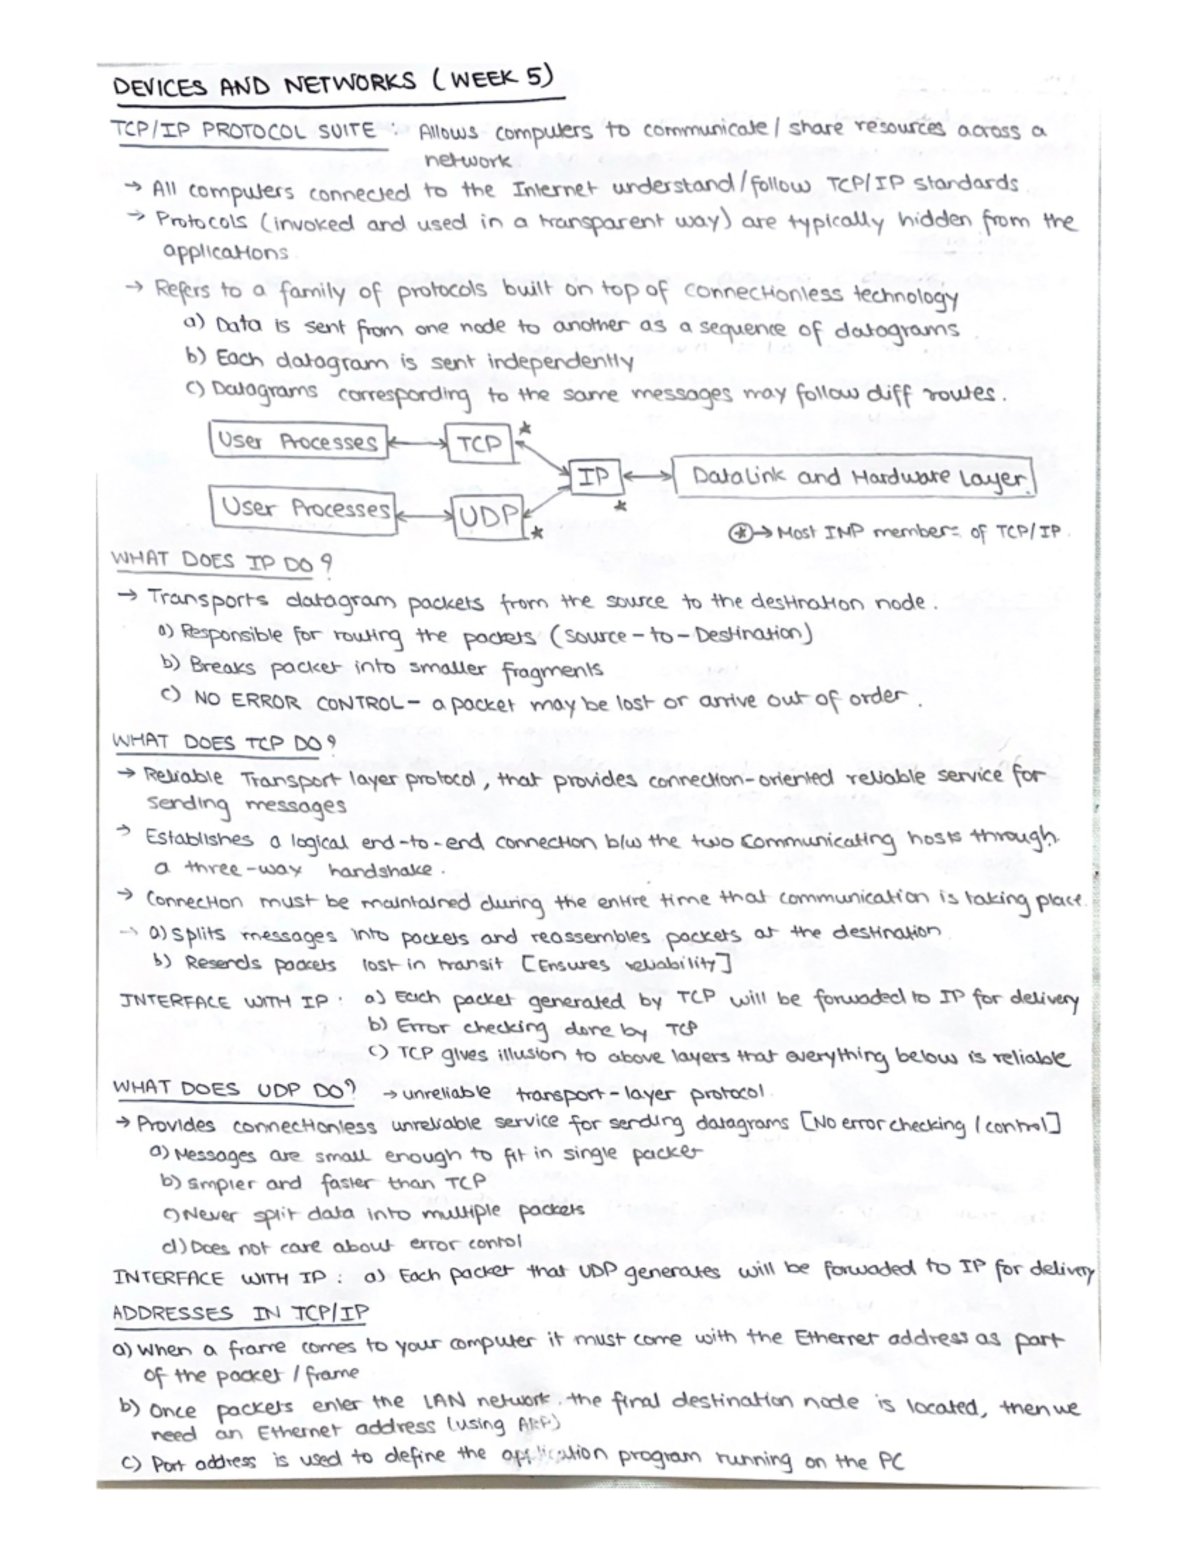 DEVICES AND NETWORKS (WEEK 5)
TCP/IP PROTOCOL SUITE : Allows computers to communicate / share resources across a
network
→ All computers connected to the Internet understand/follow TCP/IP standards
→ Protocols (invoked and used in a transparent way) are typically hidden from the
applications
→ Refers to a family of protocols built on top of connectionless technology
a) Data is sent from one node to another as a sequence of datagrams
b) Each datagram is sent independently
c) Datagrams corresponding to the same messages may follow diff routes.
User Processes TCP *
IP DataLink and Hardware Layer
User Processes UDP * *
⊛→ Most IMP members of TCP/IP.
WHAT DOES IP DO?
→ Transports datagram packets from the source to the destination node.
a) Responsible for routing the packets (Source-to-Destination)
b) Breaks packet into smaller fragments
c) NO ERROR CONTROL - a packet may be lost or arrive out of order.
WHAT DOES TCP DO?
→ Reliable Transport layer protocol, that provides connection-oriented reliable service for
sending messages
→ Establishes a logical end-to-end connection b/w the two communicating hosts through
a three-way handshake.
→ Connection must be maintained during the entire time that communication is taking place.
→ a) Splits messages into packets and reassembles packets at the destination
b) Resends packets lost in transit [Ensures reliability]
INTERFACE WITH IP : a) Each packet generated by TCP will be forwaded to IP for delivery
b) Error checking done by TCP
c) TCP gives illusion to above layers that everything below is reliable
WHAT DOES UDP DO? → unreliable transport-layer protocol.
→ Provides connectionless unreliable service for sending datagrams [No error checking / control]
a) Messages are small enough to fit in single packet
b) Simpler and faster than TCP
c) Never split data into multiple packets
d) Does not care about error contol
INTERFACE WITH IP : a) Each packet that UDP generates will be forwaded to IP for delivery
ADDRESSES IN TCP/IP
a) When a frame comes to your computer it must come with the Ethernet address as part
of the packet / frame
b) Once packets enter the LAN network. the final destination node is located, then we
need an Ethernet address (using ARP)
c) Port address is used to define the application program running on the PC